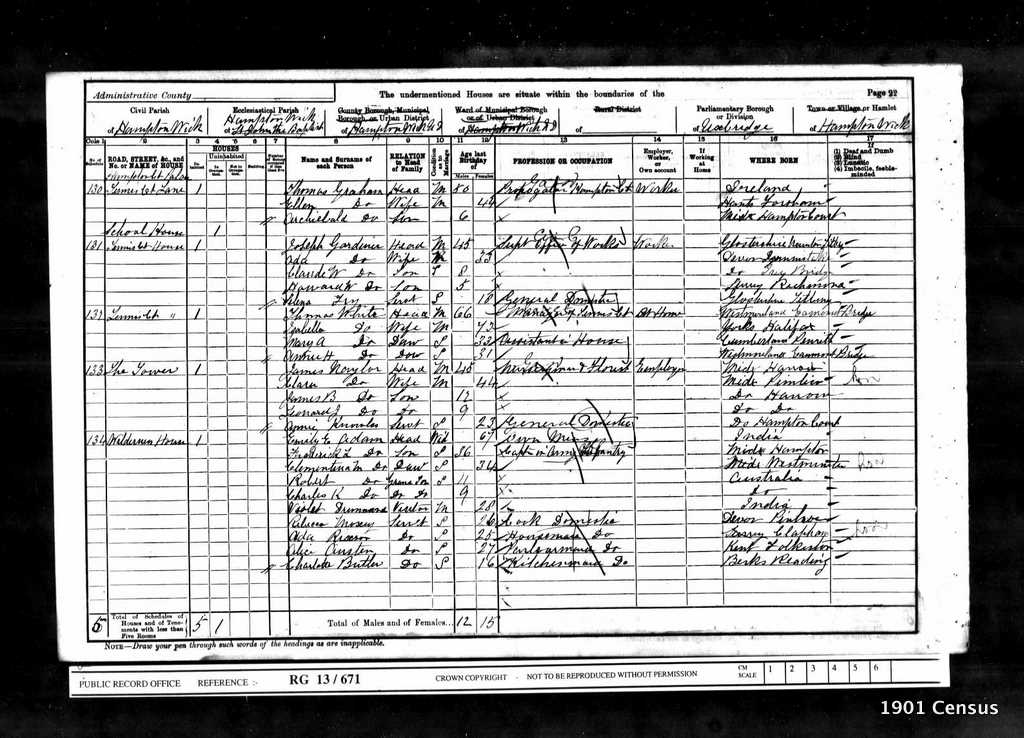 Administrative County
The undermentioned Houses are situate within the boundaries of the
Page 22
Civil Parish
of Hampton Wick
Ecclesiastical Parish
Hampton Wick
of St John the Baptist
County Borough, Municipal Borough, or Urban District
of Hampton Wick U D
Ward of Municipal Borough or of Urban District
of Hampton Wick U D
Rural District
of
Parliamentary Borough or Division
of Uxbridge
Town or Village or Hamlet
of Hampton Wick
No. of Schedule
ROAD, STREET, &c., and No. or NAME of HOUSE
HOUSES
Uninhabited
Name and Surname of each Person
RELATION to Head of Family
Condition as to Marriage
Age last Birthday of
Males
Females
PROFESSION OR OCCUPATION
Employer, Worker, or Own account
If Working at Home
WHERE BORN
If
(1) Deaf and Dumb
(2) Blind
(3) Lunatic
(4) Imbecile, feeble-minded
130 Tennis Ct Lane 1 Thomas Graham Head M 50 Hampton Ct Worker Ireland
Ellen Do Wife M 44 Hants
Archibald Do Son 6 Midx Hampton Court
School House 1
131 Tennis Ct House 1 Joseph Gardiner Head M 45 Supt Office of Works Worker
Ada Do Wife M 33 Devon
Claude W Do Son 8 Do
Howard W Do Son 5 Surrey Richmond
Fry Servt S 18 General Domestic
132 Tennis Ct " 1 Thomas White Head M 66 Manager of Tennis Ct At Home Westmorland Eamont Bridge
Isabella Do Wife M 73 Yorks Halifax
Mary A Do Daw S 33 Assistant in House Cumberland Penrith
H Do Daw S 31 Westmorland Eamont Bridge
133 The Tower 1 James Naylor Head M 45 & Florist Employer Midx Harrow
Clara Do Wife M 44 Midx Pimlico
James B Do Son 12 Do Harrow
Leonard J Do Do 9 Do Do
Annie Knowles Servt S 23 General Domestic Do Hampton Court
134 Wilderness House 1 Emily E Adam Head Wid 67 Own Means India
Frederick L Do Son S 36 Capt in Army Infantry Midx Hampton
Clementina M Do Daw S 34 Midx Westminster
Robert Do Grand Son S 11 Australia
Charles K Do Do Do 9 Do
Violet Drummond Visitor M 28 India
Servt S 26 Cook Domestic Devon
Ada Do S 25 Housemaid Do Surrey Clapham
Alice Austen Do S 27 Parlourmaid Do Kent Folkeston
Charlotte Butler Do S 16 Kitchenmaid Do Berks Reading
5 Total of Schedules of Houses and of Tenements with less than Five Rooms 5 1
Total of Males and of Females... 12 15
NOTE—Draw your pen through such words of the headings as are inapplicable.
PUBLIC RECORD OFFICE REFERENCE :- RG 13/671 CROWN COPYRIGHT - NOT TO BE REPRODUCED WITHOUT PERMISSION CM SCALE 1 2 3 4 5 6
1901 Census